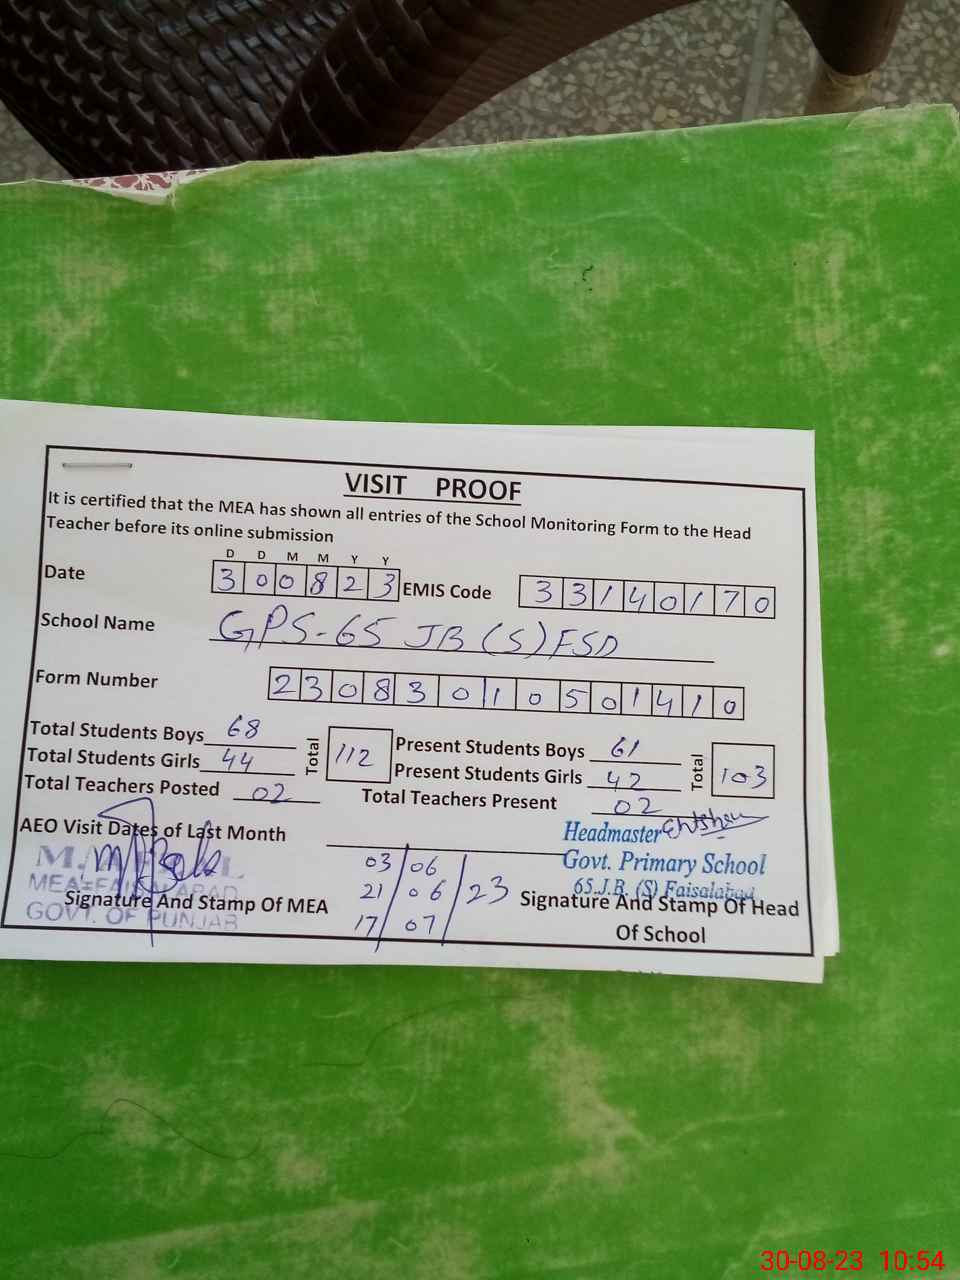 VISIT PROOF
It is certified that the MEA has shown all entries of the School Monitoring Form to the Head
Teacher before its online submission
D D M M Y Y
Date 3 0 0 8 2 3 EMIS Code 3 3 1 4 0 1 7 0
School Name GPS-65 JB (S) FSD
Form Number 2 3 0 8 3 0 1 0 5 0 1 4 1 0
Total Students Boys 68 Total 112 Present Students Boys 61 Total 103
Total Students Girls 44 Present Students Girls 42
Total Teachers Posted 02 Total Teachers Present 02
AEO Visit Dates of Last Month
Headmaster
Govt. Primary School
65.J.B. (S) Faisalabad
03/06
21/06/23
17/07
MEA-FAISALABAD
GOVT. OF PUNJAB
Signature And Stamp Of MEA
Signature And Stamp Of Head
Of School
30-08-23 10:54